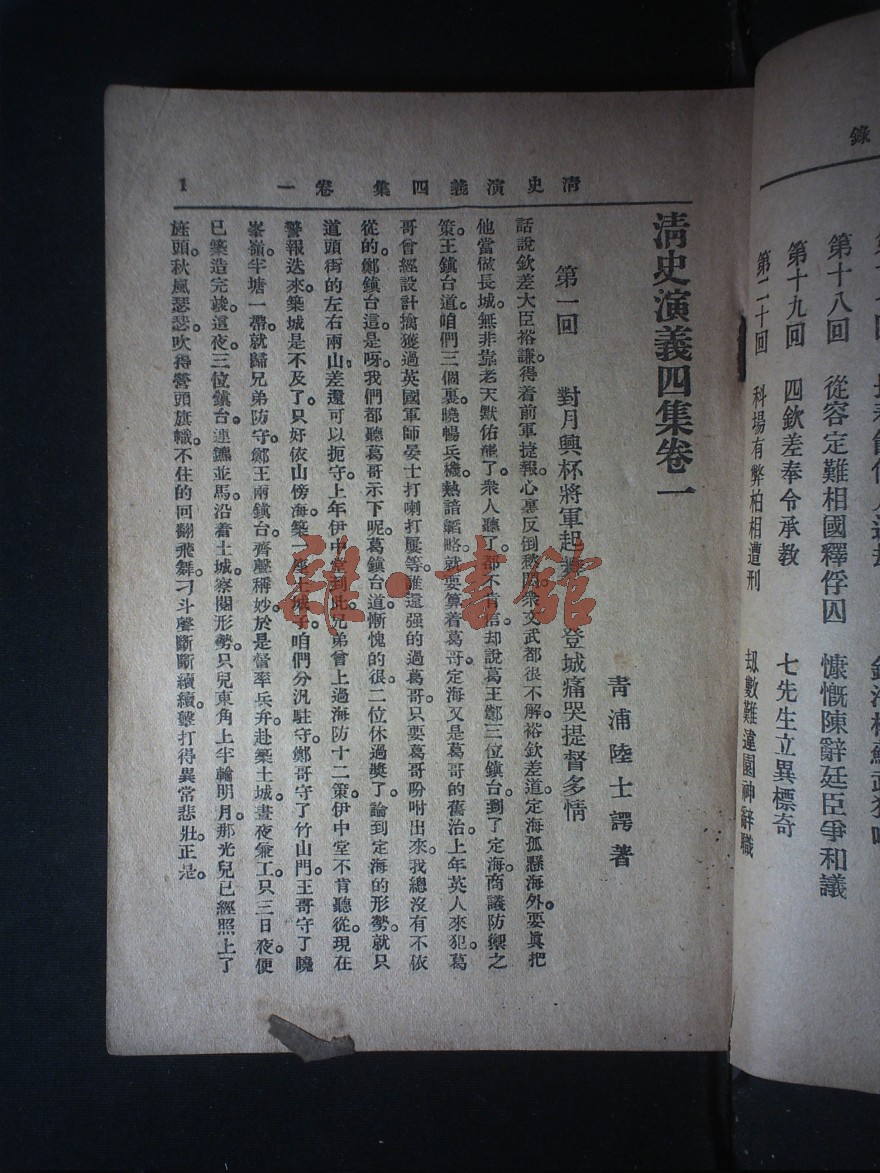 錄
第十八回　從容定難相國釋俘囚　慷慨陳辭廷臣爭和議
第十九回　四欽差奉令承教　七先生立異標奇
第二十回　科場有弊柏相遭刑　刼數難違園神辭職
清史演義四集　卷一　1
清史演義四集卷一
青浦陸士諤著
第一回　對月興杯將軍起舞　登城痛哭提督多情
話說欽差大臣裕謙。得着前軍捷報。心裏反倒愁悶。衆文武都很不解。裕欽差道。定海孤懸海外。要眞把
他當做長城。無非靠老天默佑罷了。衆人聽了。都不肯信。却說葛王鄭三位鎭台。到了定海。商議防禦之
策。王鎭台道。咱們三個裏。曉暢兵機。熱諳韜略。就要算着葛哥。定海又是葛哥的舊治。上年英人來犯。葛
哥曾經設計擒獲過英國軍師晏士打喇打厘等。誰還强的過葛哥。只要葛哥吩咐出來。我總沒有不依
從的。鄭鎭台道。是呀。我們都聽葛哥示下呢。葛鎭台道。慚愧的很。二位休過奬了。論到定海的形勢。就只
道頭街的左右兩山。差還可以扼守。上年伊中堂到此。兄弟曾上過海防十二策。伊中堂不肯聽從。現在
警報迭來。築城是不及了。只好依山傍海。築一座土城子。咱們分汛駐守。鄭哥守了竹山門。王哥守了曉
峯嶺。半塘一帶。就歸兄弟防守。鄭王兩鎭台。齊聲稱妙。於是督率兵弁。赴築土城。晝夜兼工。只三日夜。便
已築造完竣。這夜。三位鎭台。連鑣並馬。沿着土城察閱形勢。只見東角上半輪明月。那光兒已經照上了
旌頭。秋風瑟瑟。吹得營頭旗幟。不住的回翻飛舞。刁斗聲斷斷續續。擊打得異常悲壯。正是。
雜·書館